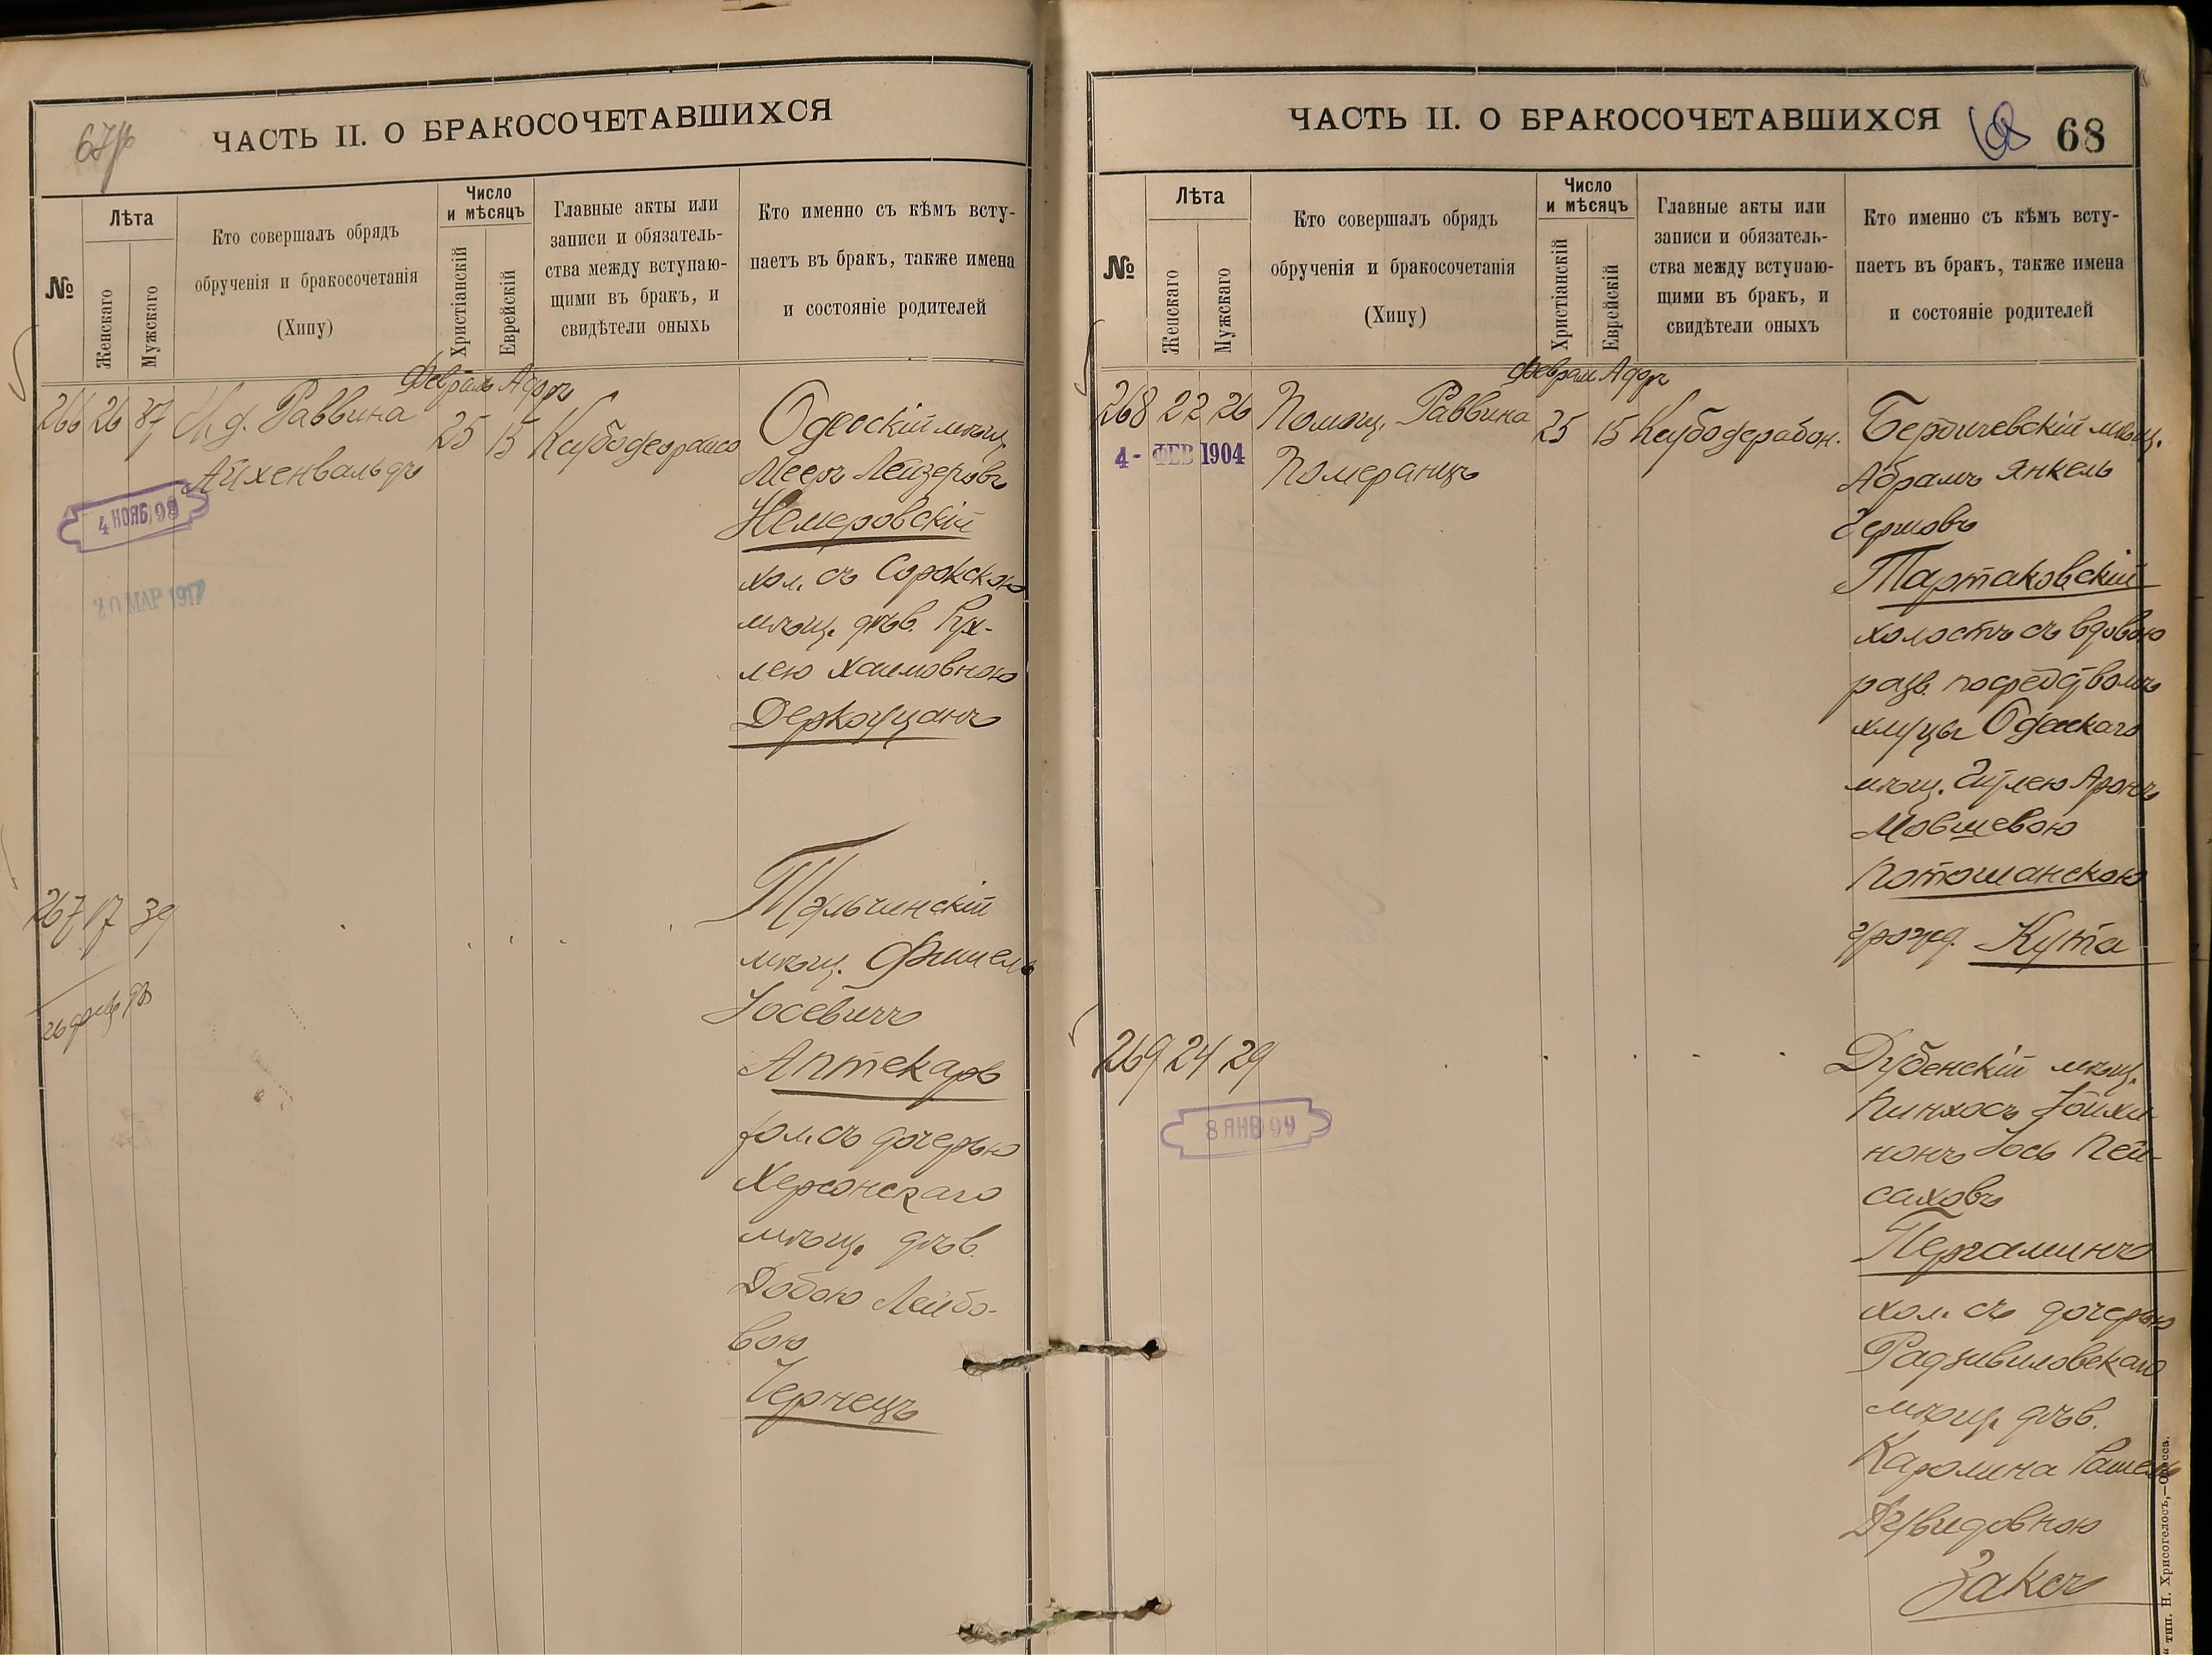 67
ЧАСТЬ II. О БРАКОСОЧЕТАВШИХСЯ
№
Лѣта
Женскаго
Мужскаго
Кто совершалъ обрядъ
обрученія и бракосочетанія
(Хипу)
Число
и мѣсяцъ
Христіанскій
Еврейскій
Главные акты или
записи и обязатель-
ства между вступаю-
щими въ бракъ, и
свидѣтели оныхъ
Кто именно съ кѣмъ всту-
паетъ въ бракъ, также имена
и состояніе родителей
Февраль Адаръ
266 26 37 И. д. Раввина 25 15
Айхенвальдъ
4 НОЯБ. 98
20 МАР 1917
Одесскій мѣщ.
Мееръ Лейзеровъ
Немеровскій
хол. съ Сорокскою
мѣщ. дѣв. Рух-
лею Хаимовною
Деркауцанъ
267 17 39
Тульчинскій
мѣщ. Фишель
Іосевичъ
Аптекарь
хол. съ дочерью
Херсонскаго
мѣщ. дѣв.
Добою Лейбо-
вою
Чернецъ
ЧАСТЬ II. О БРАКОСОЧЕТАВШИХСЯ
68
68
№
Лѣта
Женскаго
Мужскаго
Кто совершалъ обрядъ
обрученія и бракосочетанія
(Хипу)
Число
и мѣсяцъ
Христіанскій
Еврейскій
Главные акты или
записи и обязатель-
ства между вступаю-
щими въ бракъ, и
свидѣтели оныхъ
Кто именно съ кѣмъ всту-
паетъ въ бракъ, также имена
и состояніе родителей
Февраль Адаръ
268 22 26 Помощ. Раввина 25 15
Померанцъ
4- ФЕВ 1904
Бердичевскій мѣщ.
Абрамъ Янкель
Гершовъ
Тартаковскій
холостъ съ вдовою
разв. посредствомъ
халуцы Одесскаго
мѣщ. Гитлею Аронъ
Мовшевою
Потошанскою
урожд. Кута
269 24 29
8 ЯНВ 99
Дубенскій мѣщ.
Пинхосъ
Іось Пей-
саховъ
Пергаминъ
хол. съ дочерью
Радзивиловскаго
мѣщ. дѣв.
Каролина
Давидовною
Заксъ
тип. Н. Хрисогелосъ,—Одесса.